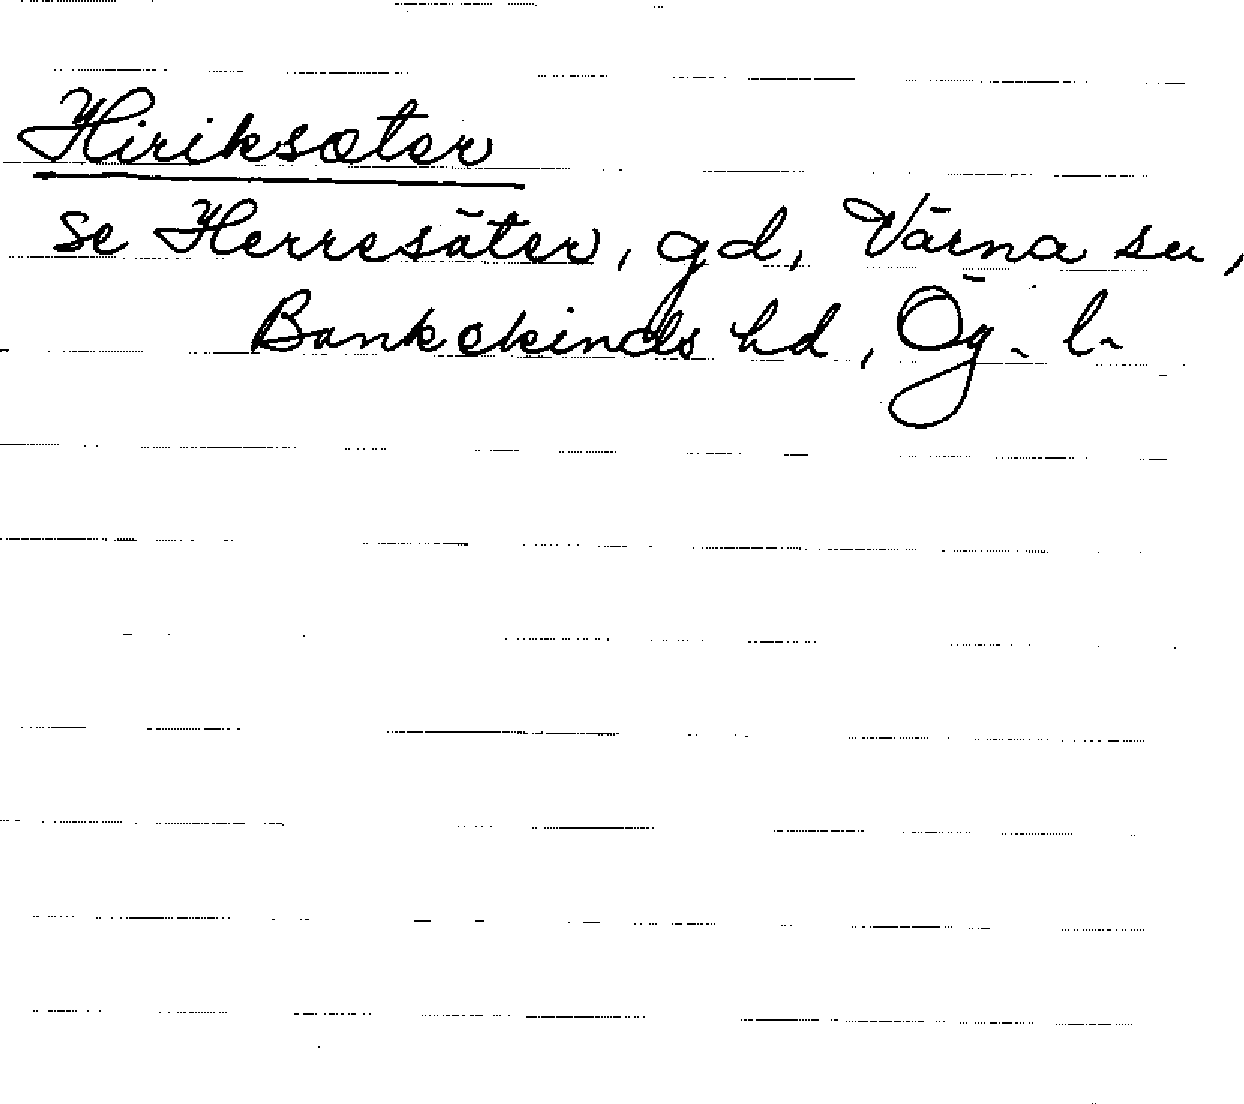 Hiriksæter
se Herresäter, gd, Värna sn,
Bankekinds hd, Ög. l.